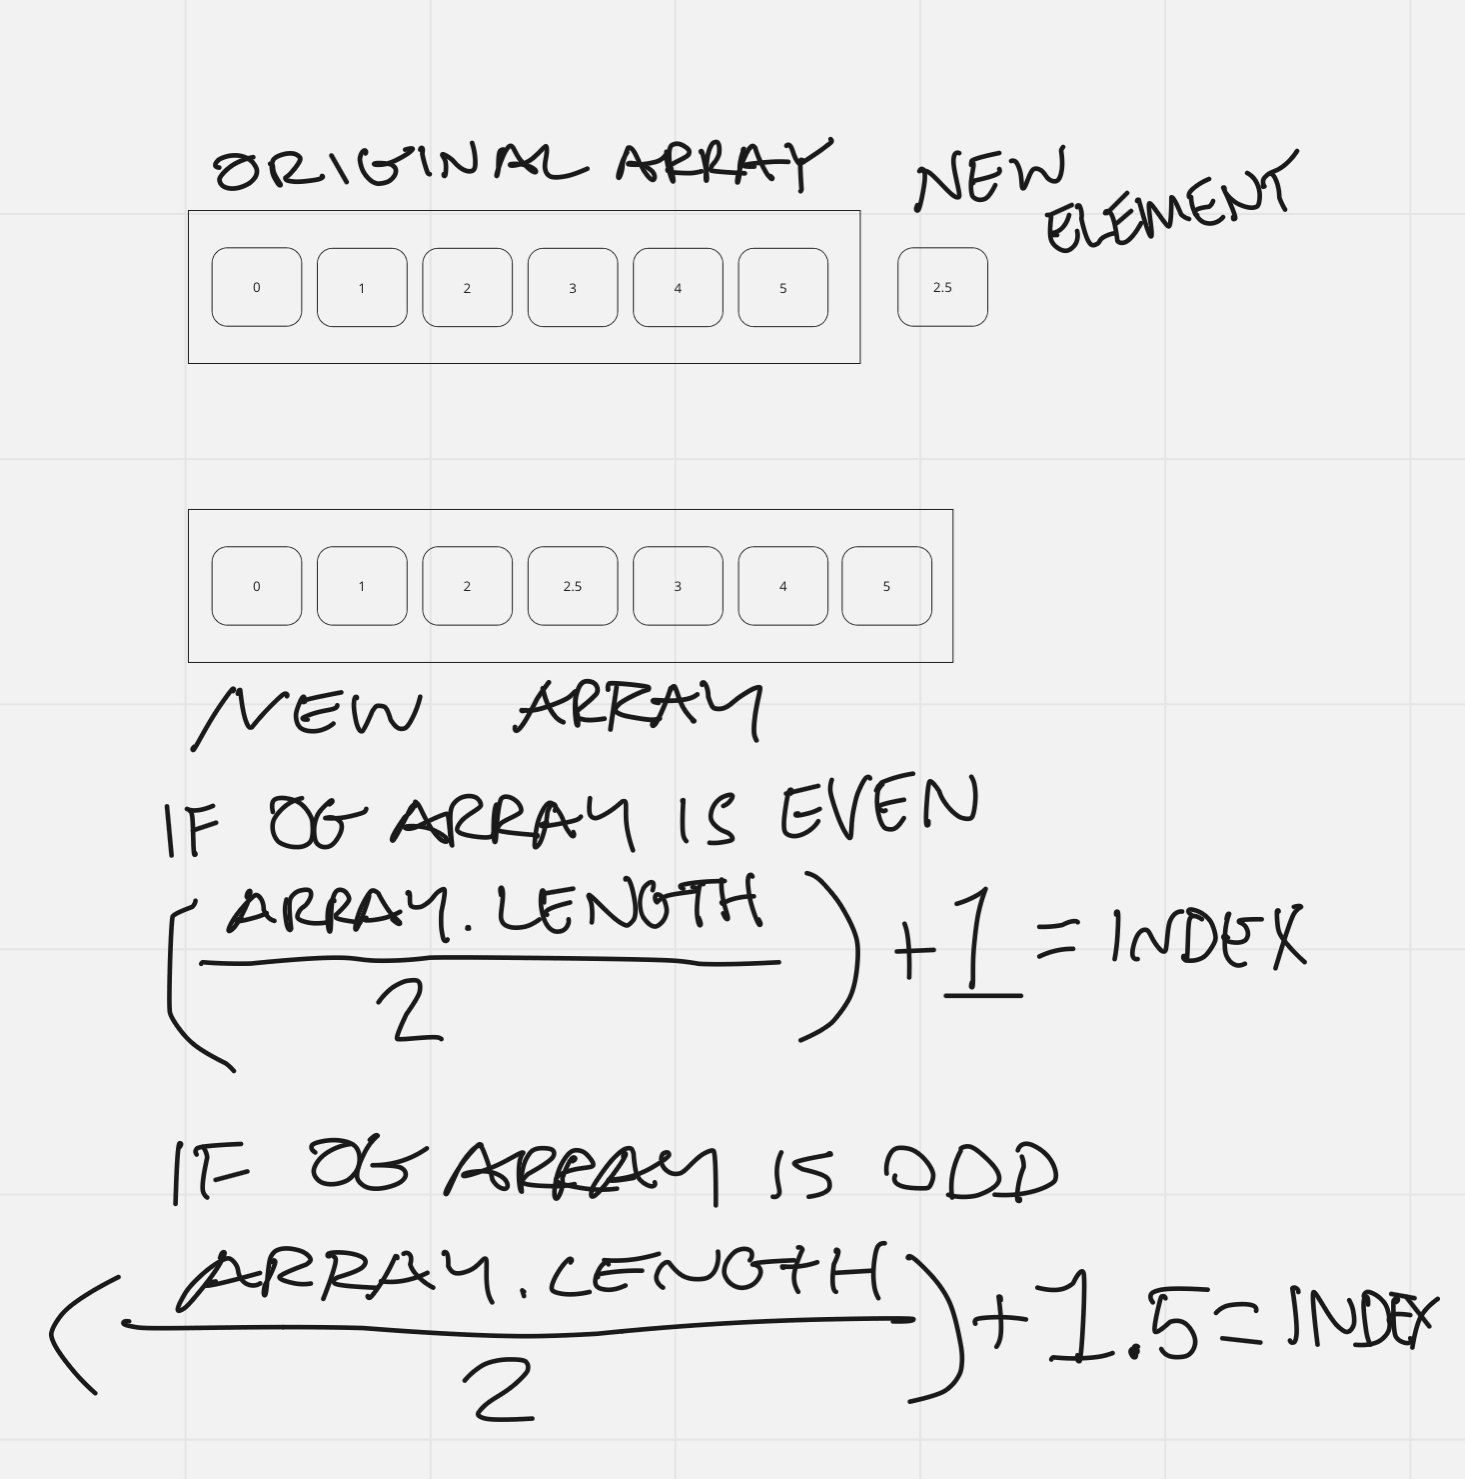 ORIGINAL ARRAY
NEW
ELEMENT
0 1 2 3 4 5 2.5
0 1 2 2.5 3 4 5
NEW ARRAY
IF OG ARRAY IS EVEN
(ARRAY.LENGTH / 2) + 1 = INDEX
IF OG ARRAY IS ODD
(ARRAY.LENGTH / 2) + 1.5 = INDEX